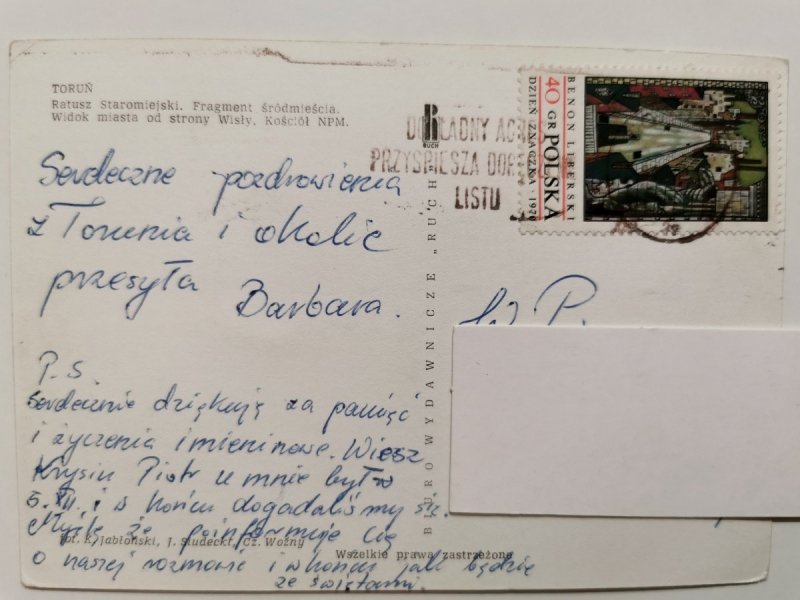 TORUŃ
Ratusz Staromiejski. Fragment śródmieścia.
Widok miasta od strony Wisły. Kościół NPM.
RUCH
PRZYŚPIESZA
LISTU
40 GR POLSKA
BENON LIBERSKI
DZIEŃ ZNACZKA · 1970
Serdeczne pozdrowienia
z Torunia i okolic
przesyła Barbara.
W.P.
P.S.
Serdecznie dziękuję za pamięć
i życzenia imieninowe. Wiesz
Krysiu Piotr u mnie był w
5.XII. i w końcu dogadaliśmy się.
Myślę że poinformuje Cię
o naszej rozmowie i w końcu jak będzie
ze świętami.
Fot. K. Jabłoński, J. Siudecki, Cz. Woźny
Wszelkie prawa zastrzeżone
BIURO WYDAWNICZE „RUCH"